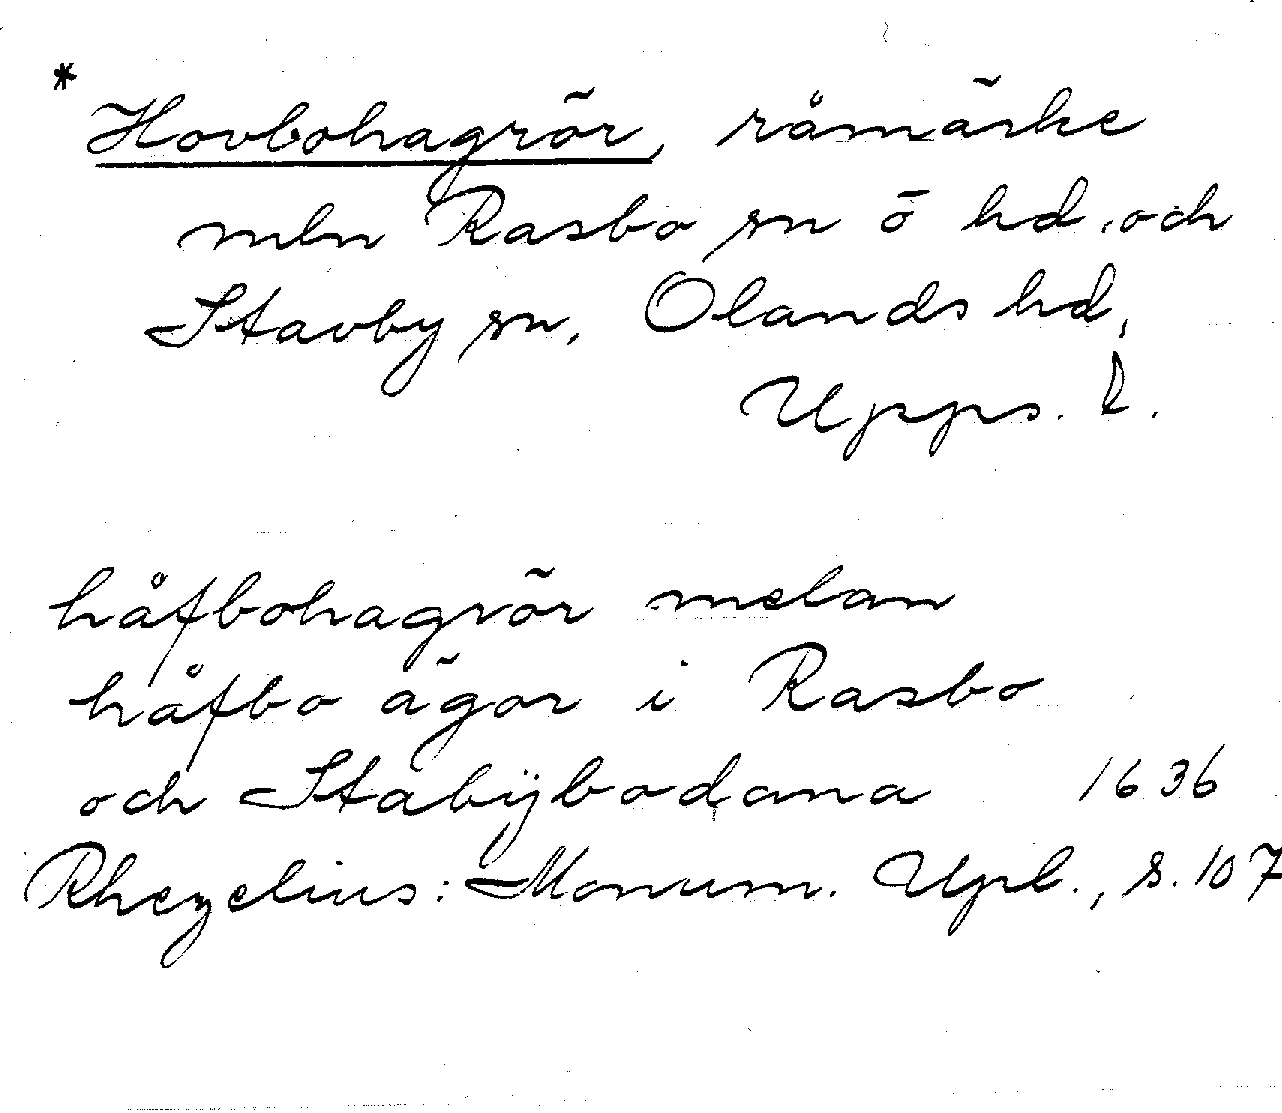 * Hovbohagrör, råmärke
mln Rasbo sn o hd, och
Stavby sn, Olands hd,
Upps. l.
håfbohagrör melan
håfbo ägor i Rasbo
och Stabÿbodana 1636
Rhezelius: Monum. Upl., s. 107